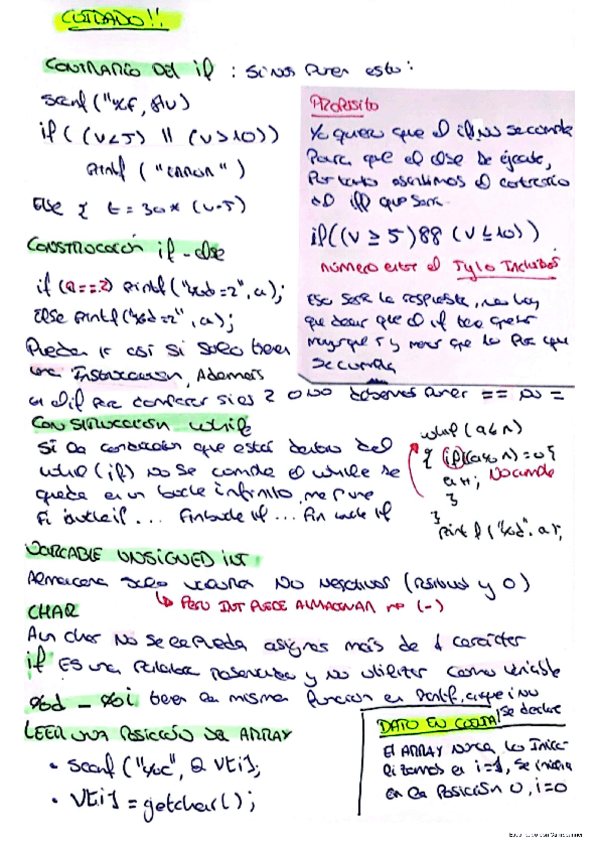 CUIDADO!!
CONTRARIO DEL if : Si nos ponen esto:
scanf ("%f, &v)
if ( (v<5) || (v>10))
printf ("ERROR")
Else { t = 30* (v-5)
PROPOSITO
Yo quiero que el if no se cumpla
Para que el else se ejecute,
Por tanto escribimos el contrario
del if que será
if((v ≥ 5)&& (v ≤ 10))
número entre el 5 y 10 INCLUIDOS
Esa será la respuesta, no hay
que decir que el if tiene que ser
mayor que 5 y menor que 10 Para que
se cumpla
CONSTRUCCIÓN if - else
if (a==2) printf("%d=2", a);
Else printf("%d=2", a);
Pueden ir así si solo tienen
una Instrucción, Además
en el if para comparar si es 2 o no debemos poner == no =
CONSTRUCCIÓN while
Si la condición que está dentro del
while (if) no se cumple el while se
queda en un bucle infinito, me pone
Fin bucle if ... Fin bucle if ... Fin bucle if
while (a<n)
{ if(a%n)=0{
a++; No cumple
}
}
printf("%d", a);
VARIABLE UNSIGNED INT
Almacena solo valores NO negativos (positivos y 0)
↳ PERO INT PUEDE ALMACENAR nº (-)
CHAR
A un char No se le puede asignar más de 1 carácter
if ES una Palabra reservada y no utilizar como variable
%d - %i tienen la misma funcion en Printf, aunque i no
se declare
LEER UNA POSICIÓN DE ARRAY
• scanf ("%c", & v[i];
• v[i] = getchar();
DATO EN COSTA
El ARRAY nunca lo Inicia-
lizamos en i=1, se inicia
en la Posición 0, i=0